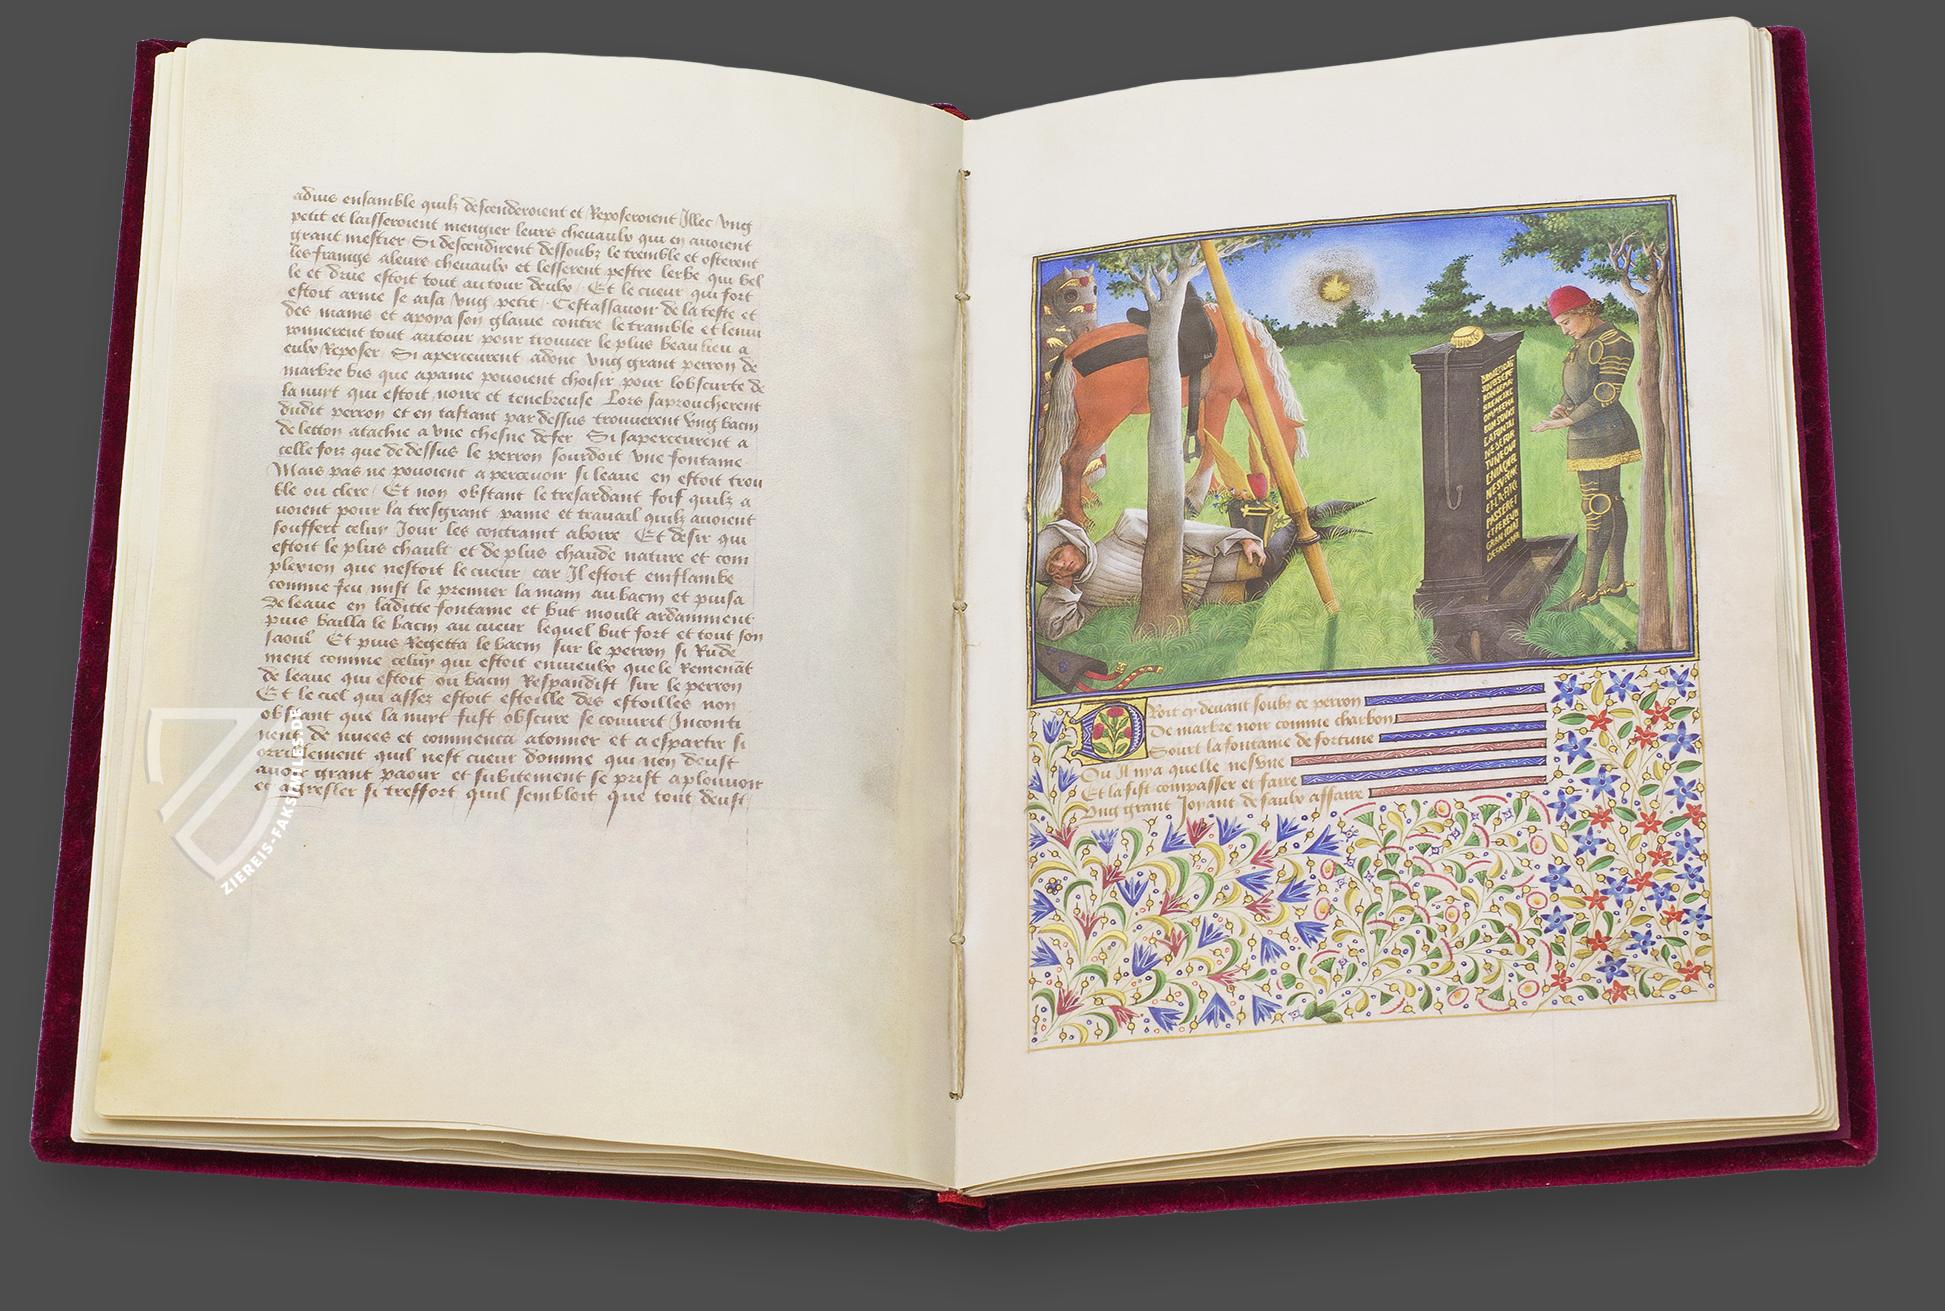 aduis ensamble quilz descenderoient et Reposeroient Illec Vng
petit et laisseroient mengier leurs cheuaulx qui en auoient
grant mestier Si descendirent dessoubz le tremble et osterent
les frainge aleurs cheuaulx et lesserent pestre lerbe qui bel
le et drue estoit tout autour deulx Et le cueur qui fort
estoit arme se aisa Vng petit Cestassauoir de la teste et
des mains et apoya son glaiue contre le tramble et
tout autour pour trouuer le plus beau lieu a
eulx Reposer Si aperceurent adont Vng grant perron de
marbre bis que apaine pouoient choisir pour lobscurte de
la nuyt qui estoit noire et tenebreuse Lors saproucherent
dudit perron et en tastant par dessus trouuerent Vng bacin
de letton atachie a vne chesne de fer Si saperceurent a
celle foiz que de dessus le perron sourdoit vne fontaine
Mais pas ne pouoient aperceuoir si leaue en estoit trou
ble ou clere Et non obstant le tresardant soif quilz a
uoient pour la tresgrant paine et trauail quilz auoient
souffert celuy Jour les contraint aboire Et desir qui
estoit le plus chault et de plus chaude nature et com
plexion que nestoit le cueur car Il estoit emflambe
comme feu mist le premier la main au bacin et puisa
de leaue en laditte fontaine et but moult ardamment
puis bailla le bacin au cueur lequel but fort et tout son
saoul Et puis Regetta le bacin sur le perron si Rude
ment comme celuy qui estoit enuieulx que le Remenant
de leaue qui estoit ou bacin Respandist sur le perron
Et le ciel qui assez estoit estoille des estoilles non
obstant que la nuyt fust obscure se couurit Inconti
nent de nuees et commenca atonner et a espartir si
orriblement quil nest cueur domme qui nen deust
auoir grant paour et subitement se prist aplouuoir
et gresler si tresfort quil sembloit que tout deust
Droit cy deuant soubz ce perron
De marbre noir comme charbon
Sourt la fontaine de fortune
Ou Il nya quelle nesune
Et la fist compasser et faire
Vng grant Joyant de faulx affaire
ZIEREIS-FAKSIMILES.DE